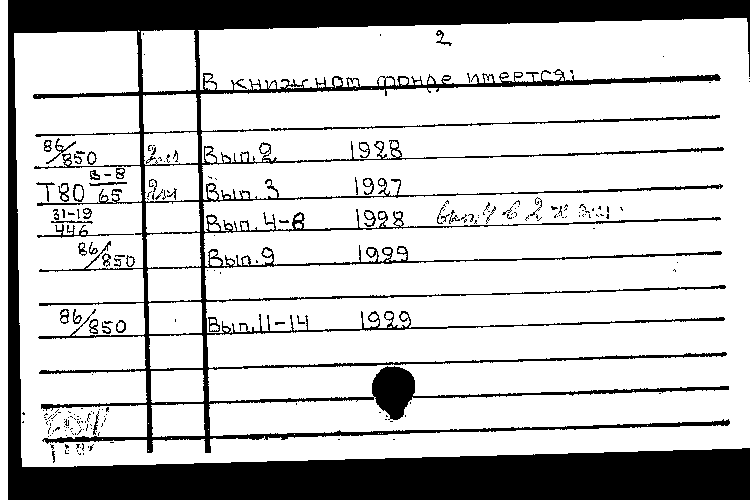 2
В книжном фонде имеется:
86/850 2 экз Вып.2 1928
Т80 В-8/65 2 экз Вып.3 1927
31-19/446 Вып.4-8 1928 вып.4 в 2-х экз.
86/850 Вып.9 1929
86/850 Вып.11-14 1929